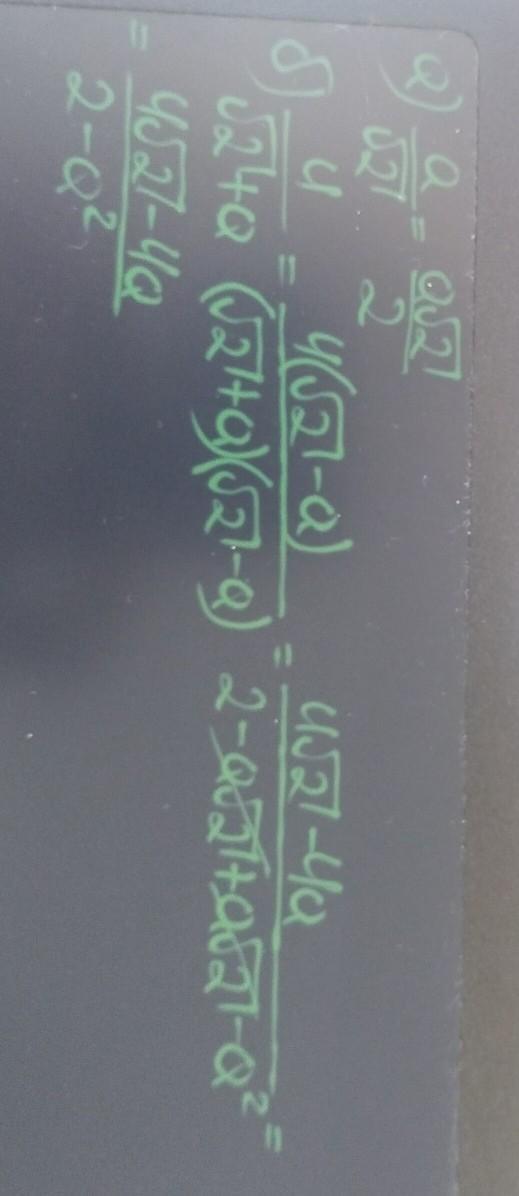 а) a/√2 = a√2/2
б) 4/(√2+a) = 4(√2-a)/((√2+a)(√2-a)) = (4√2-4a)/(2-a√2+a√2-a²) =
= (4√2-4a)/(2-a²)